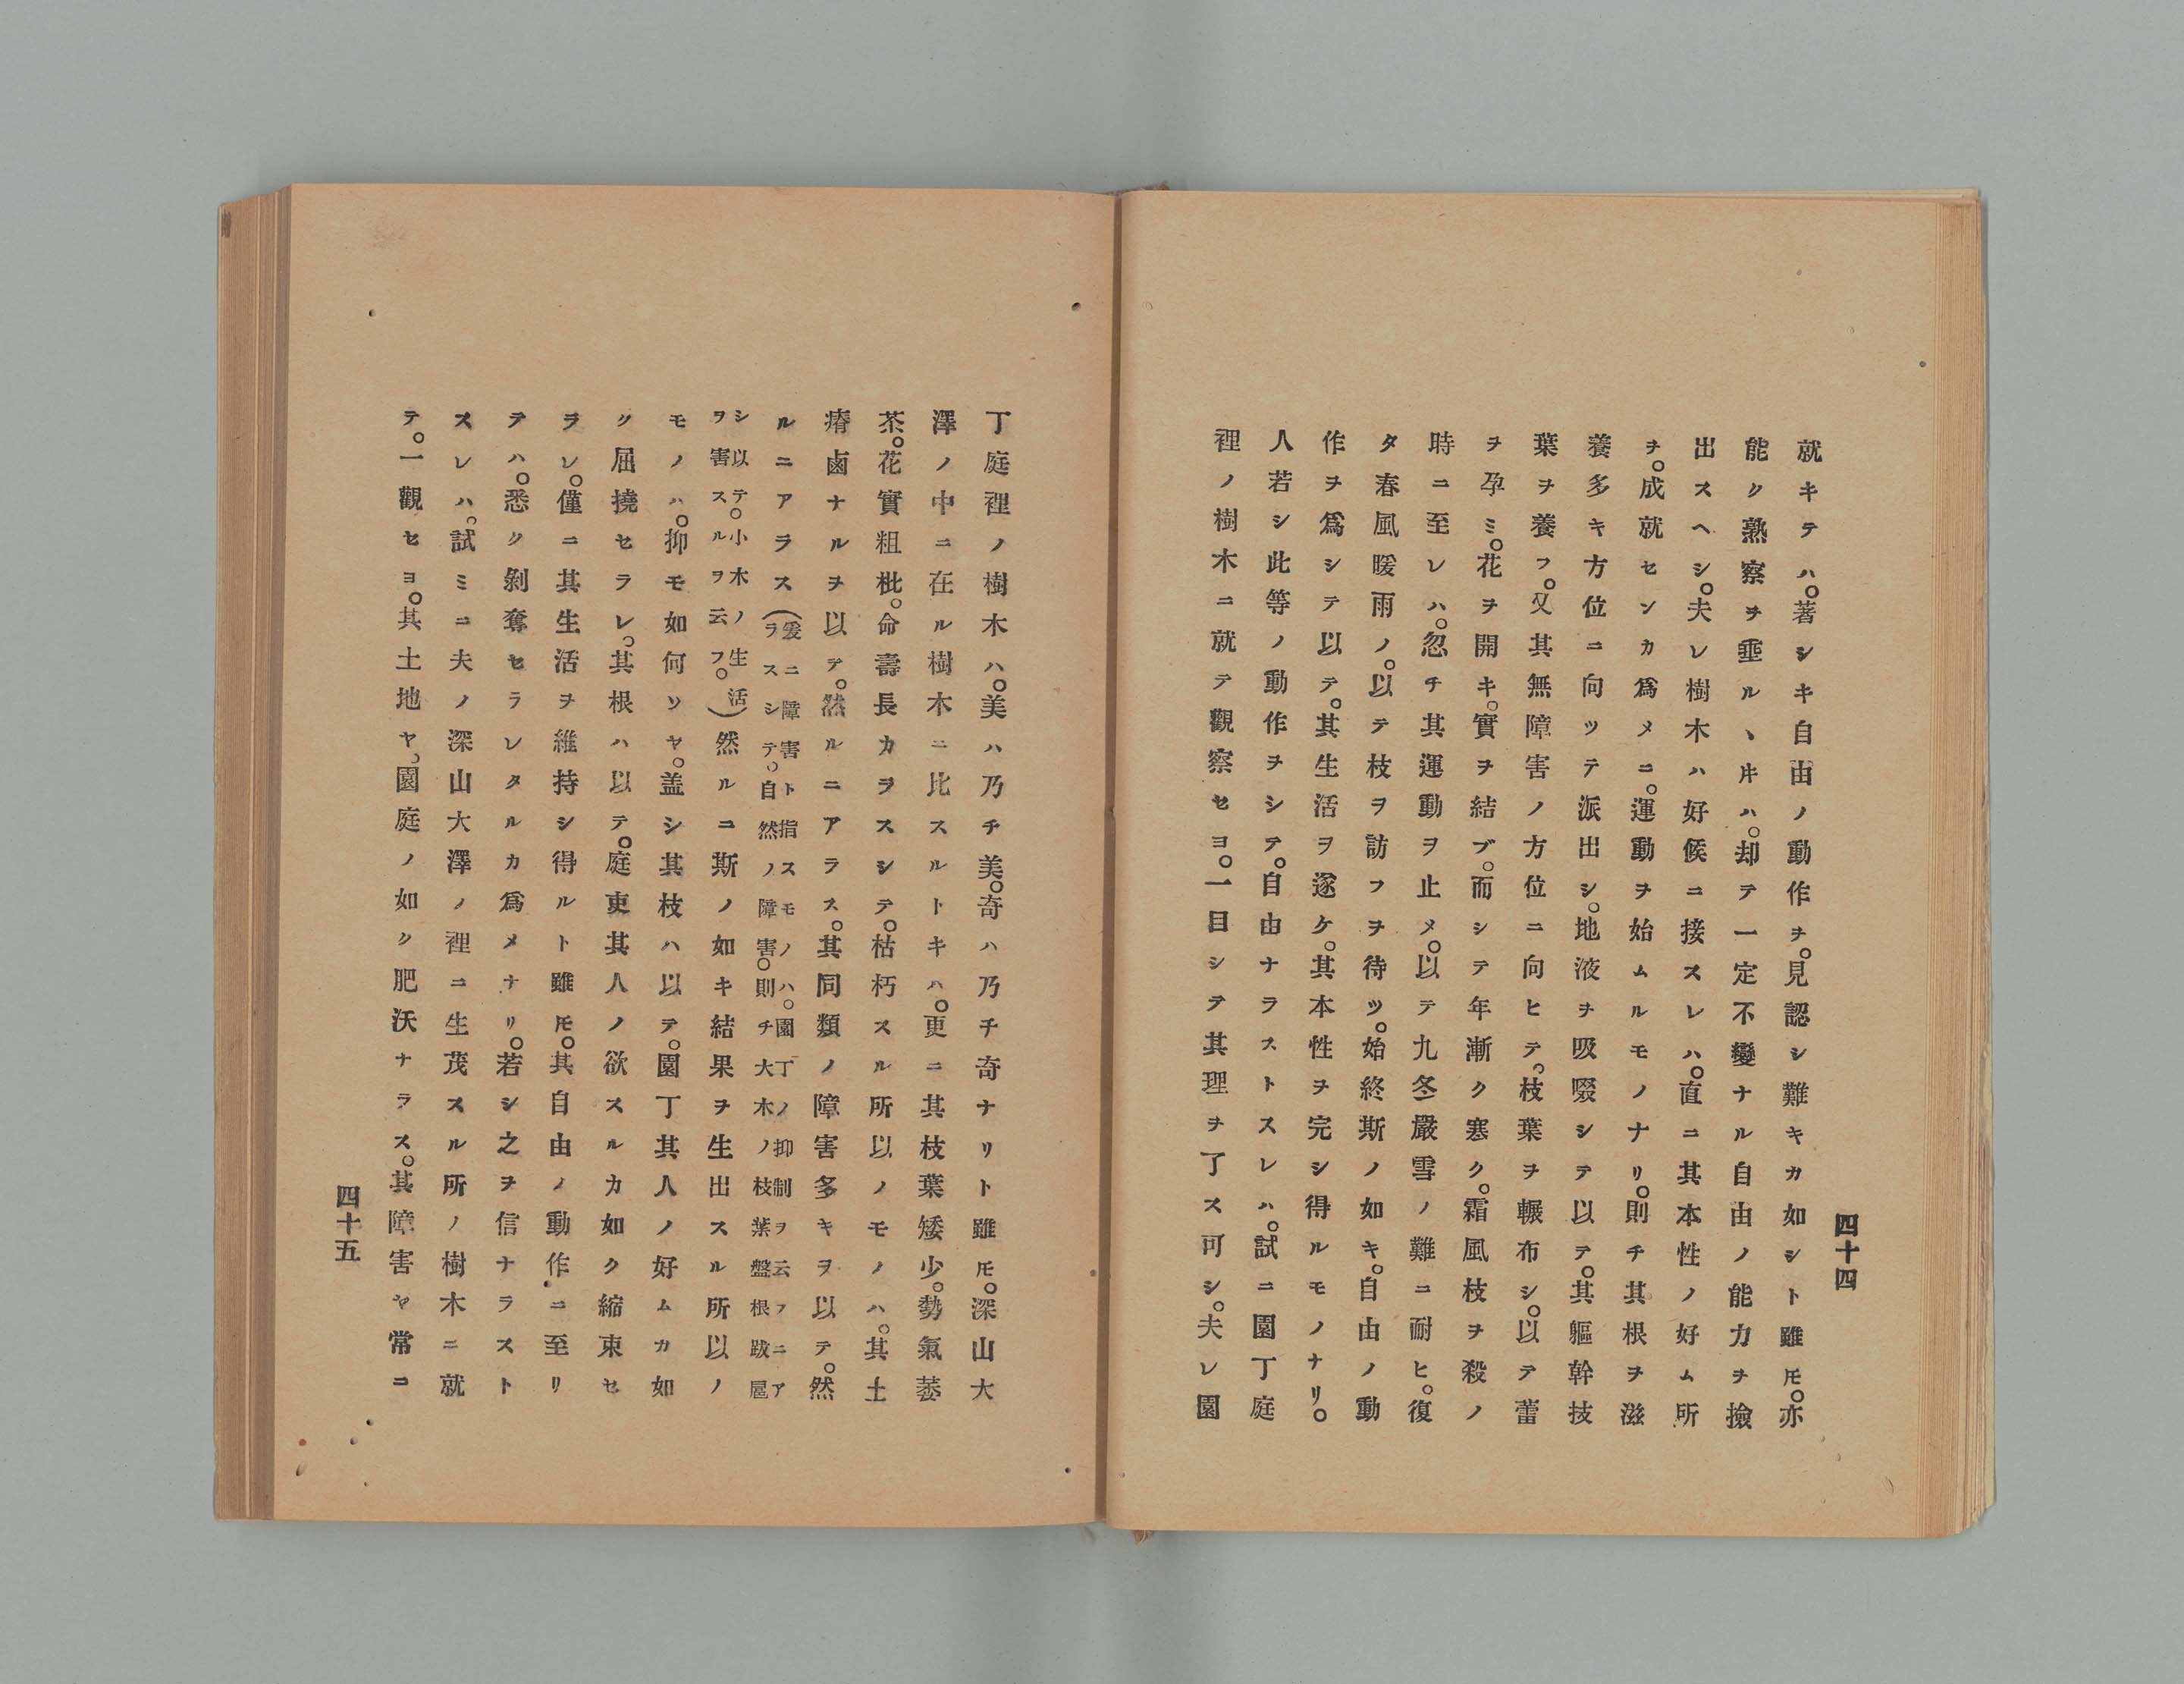 四十四
就キテハ。著シキ自由ノ動作ヲ。見認シ難キカ如シト雖モ。亦
能ク熟察ヲ垂ルヽ𪜈ハ。却テ一定不變ナル自由ノ能力ヲ撿
出スヘシ。夫レ樹木ハ好候ニ接スレハ。直ニ其本性ノ好ム所
ヲ。成就センカ爲メニ。運動ヲ始ムルモノナリ。則チ其根ヲ滋
養多キ方位ニ向ツテ派出シ。地液ヲ吸啜シテ以テ。其軀幹技
葉ヲ養フ。又其無障害ノ方位ニ向ヒテ。枝葉ヲ輾布シ。以テ蕾
ヲ孕ミ。花ヲ開キ。實ヲ結ブ。而シテ年漸ク寒ク。霜風枝ヲ殺ノ
時ニ至レハ。忽チ其運動ヲ止メ。以テ九冬嚴雪ノ難ニ耐ヒ。復
タ春風暖雨ノ。以テ枝ヲ訪フヲ待ツ。始終斯ノ如キ。自由ノ動
作ヲ爲シテ以テ。其生活ヲ遂ケ。其本性ヲ完シ得ルモノナリ。
人若シ此等ノ動作ヲシテ。自由ナラストスレハ。試ニ園丁庭
裡ノ樹木ニ就テ觀察セヨ。一目シテ其理ヲ了ス可シ。夫レ園
丁庭裡ノ樹木ハ。美ハ乃チ美。奇ハ乃チ奇ナリト雖モ。深山大
澤ノ中ニ在ル樹木ニ比スルトキハ。更ニ其枝葉矮少。勢氣萎
茶。花實粗枇。命壽長カラスシテ。枯朽スル所以ノモノハ。其土
瘠鹵ナルヲ以テ。然ルニアラス。其同類ノ障害多キヲ以テ。然
ルニアラス(爰ニ障害ト指スモノハ。園丁ノ抑制ヲ云フニア
ラスシテ。自然ノ障害。則チ大木ノ枝葉盤根跋扈
シ以テ。小木ノ生活
ヲ害スルヲ云フ。)然ルニ斯ノ如キ結果ヲ生出スル所以ノ
モノハ。抑モ如何ソヤ。盖シ其枝ハ以テ。園丁其人ノ好ムカ如
ク屈撓セラレ。其根ハ以テ。庭更其人ノ欲スルカ如ク縮束セ
ラレ。僅ニ其生活ヲ維持シ得ルト雖モ。其自由ノ動作ニ至リ
テハ。悉ク剝奪セラレタルカ爲メナリ。若シ之ヲ信ナラスト
スレハ。試ミニ夫ノ深山大澤ノ裡ニ生茂スル所ノ樹木ニ就
テ。一觀セヨ。其土地ヤ。園庭ノ如ク肥沃ナラス。其障害ヤ常ニ
四十五